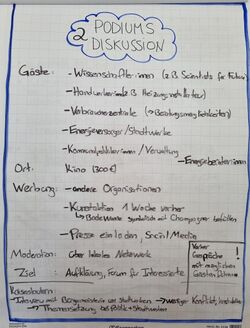 2 PODIUMS
DISKUSSION
Gäste: - Wissenschaftler:innen (z.B. Scientists for Future)
- Handwerker:innen (z.B. Heizungsinstallateur)
- Verbraucherzentrale (→ Beratungsmöglichkeiten)
- Energieversorger / Stadtwerke
- Kommunalpolitiker:innen / Verwaltung
- Energieberater:innen
Ort: Kino (300€)
Werbung: - andere Organisationen
- Kunstaktion 1 Woche vorher
↳ Badewanne symbolisch mit Champagner befüllen
- Presse einladen, Social Media
Moderation: über lokales Netzwerk
Ziel: Aufklärung, Forum für Interessierte
Vorher
Gespräche
mit möglichen
Gästen führen
!
- Interview mit Bürgermeister:in und Stadtwerken → weniger Konflikt,
→ Themensetzung des Publikums